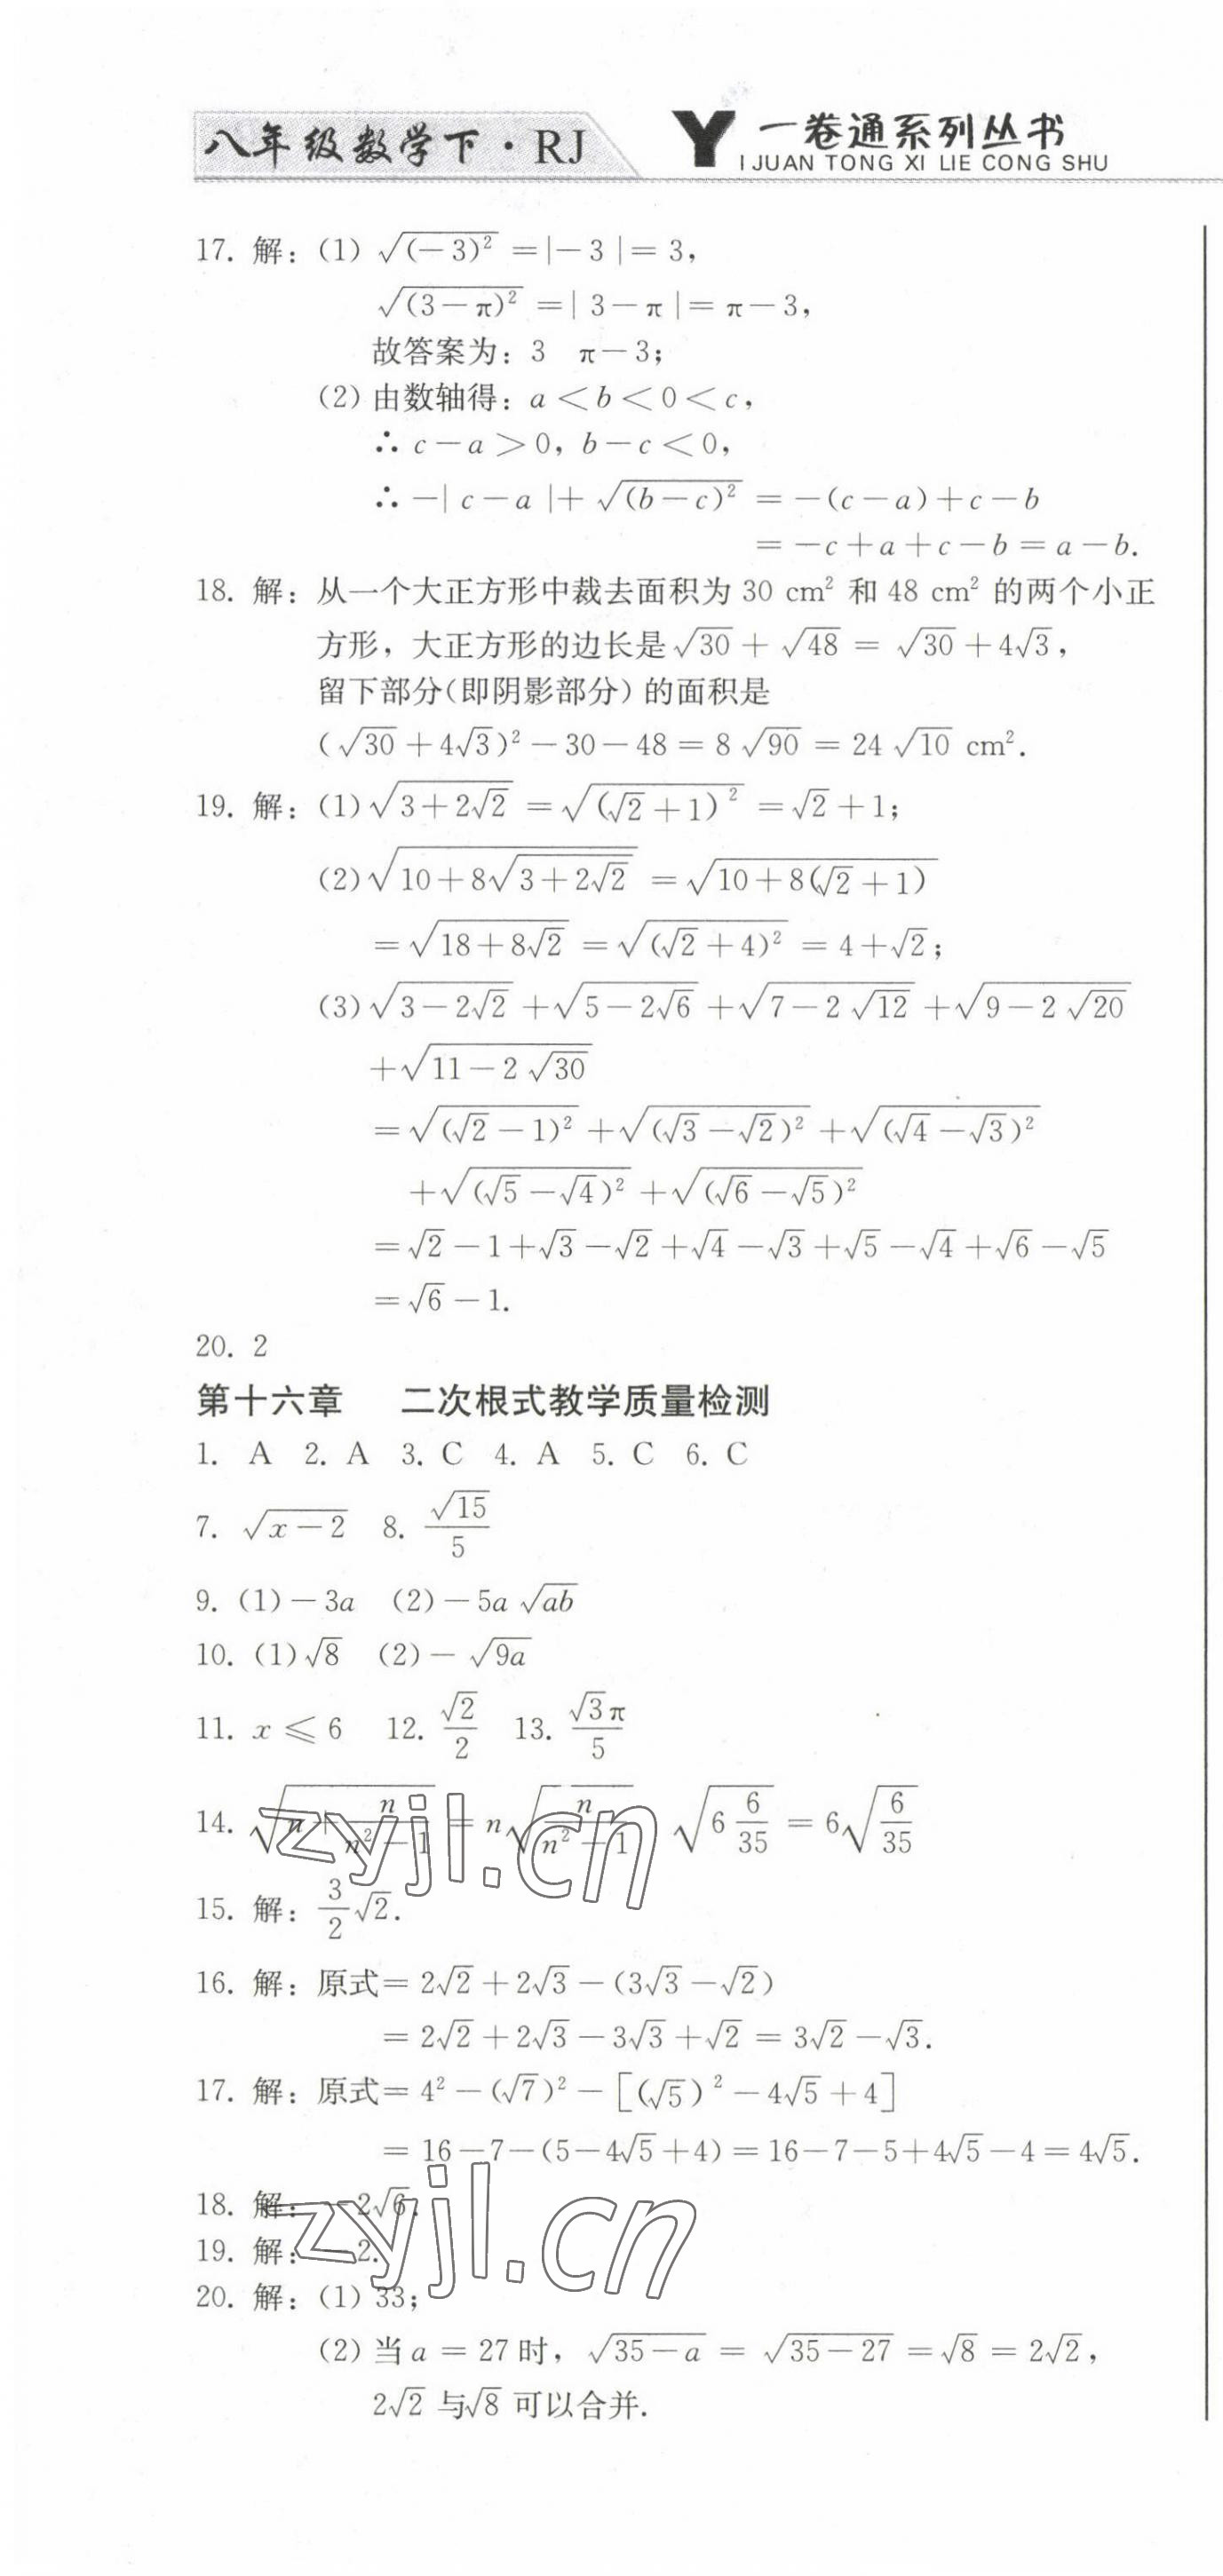 八年级数学下·RJ
Y 一卷通系列丛书
I JUAN TONG XI LIE CONG SHU
17. 解：(1) √((-3)²) = |-3| = 3，
√((3-π)²) = |3-π| = π-3，
故答案为：3  π-3；
(2) 由数轴得：a<b<0<c，
∴ c-a>0，b-c<0，
∴ -|c-a|+√((b-c)²) = -(c-a)+c-b
= -c+a+c-b = a-b.
18. 解：从一个大正方形中裁去面积为 30 cm² 和 48 cm² 的两个小正
方形，大正方形的边长是√30 + √48 = √30 + 4√3，
留下部分(即阴影部分)的面积是
(√30 + 4√3)² - 30 - 48 = 8√90 = 24√10 cm².
19. 解：(1) √(3+2√2) = √((√2+1)²) = √2+1；
(2) √(10+8√(3+2√2)) = √(10+8(√2+1))
= √(18+8√2) = √((√2+4)²) = 4+√2；
(3) √(3-2√2) + √(5-2√6) + √(7-2√12) + √(9-2√20)
+√(11-2√30)
= √((√2-1)²) + √((√3-√2)²) + √((√4-√3)²)
+√((√5-√4)²) + √((√6-√5)²)
= √2-1+√3-√2+√4-√3+√5-√4+√6-√5
= √6-1.
20. 2
第十六章  二次根式教学质量检测
1. A  2. A  3. C  4. A  5. C  6. C
7. √(x-2)  8. √15/5
9. (1) -3a  (2) -5a√(ab)
10. (1) √8  (2) -√(9a)
11. x≤6  12. √2/2  13. √3π/5
14. √(n+n/(n²-1)) = n√(n/(n²-1))  √(6 6/35) = 6√(6/35)
zyjl.cn
15. 解：3/2 √2.
16. 解：原式= 2√2+2√3-(3√3-√2)
= 2√2+2√3-3√3+√2 = 3√2-√3.
17. 解：原式= 4²-(√7)²-[(√5)²-4√5+4]
= 16-7-(5-4√5+4) = 16-7-5+4√5-4 = 4√5.
18. 解：-2√6.
zyjl.cn
19. 解：-2.
20. 解：(1) 33；
(2) 当 a = 27 时，√(35-a) = √(35-27) = √8 = 2√2，
2√2 与√8 可以合并.